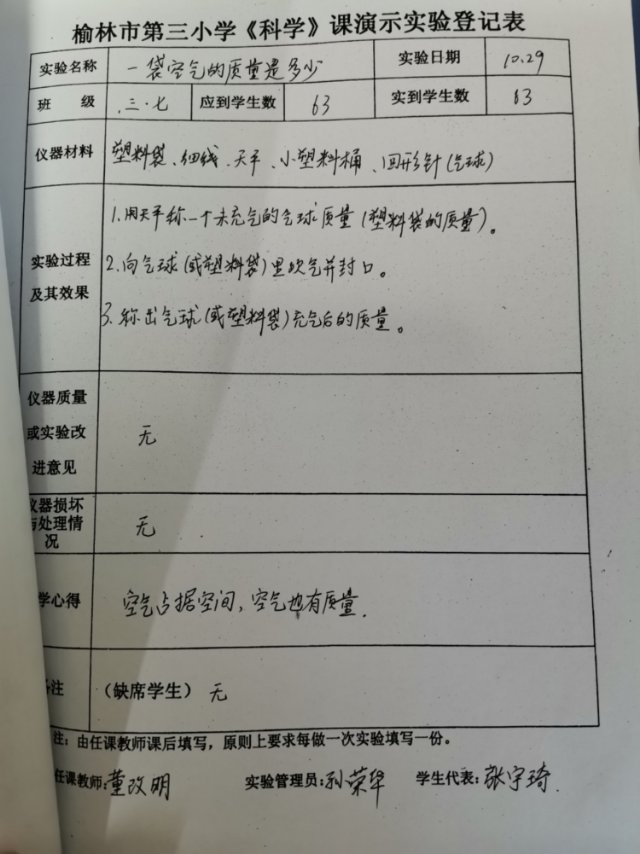 榆林市第三小学《科学》课演示实验登记表
实验名称 一袋空气的质量是多少 实验日期 10.29
班 级 三·七 应到学生数 63 实到学生数 63
仪器材料 塑料袋、细线、天平、小塑料桶、回形针(气球)
1.用天平称一个未充气的气球质量(塑料袋的质量)。
实验过程 2.向气球(或塑料袋)里吹气并封口。
及其效果
3.称出气球(或塑料袋)充气后的质量。
仪器质量
或实验改 无
进意见
仪器损坏
与处理情 无
况
学心得 空气占据空间,空气也有质量.
备注 (缺席学生) 无
注:由任课教师课后填写,原则上要求每做一次实验填写一份。
任课教师:董改明 实验管理员:孙荣华 学生代表:张宇琦